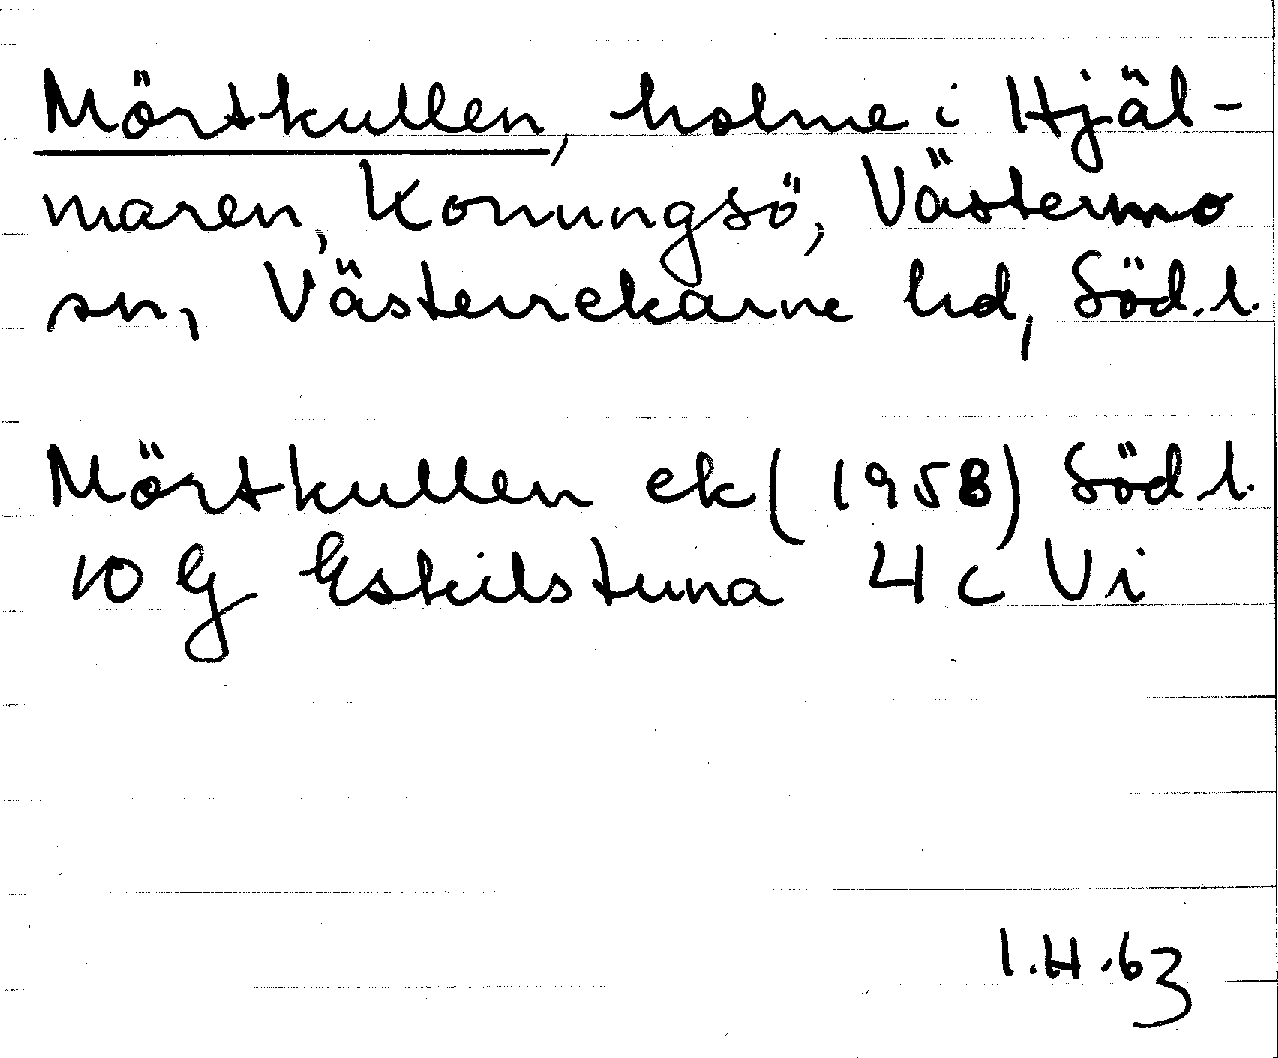 Mörtkullen, holme i Hjäl-
maren, Konungsö, Västermo
sn, Västerrekarne hd, Söd.l.
Mörtkullen ek (1958) Söd.l.
10 G Eskilstuna 4 c Vi
I.H.63